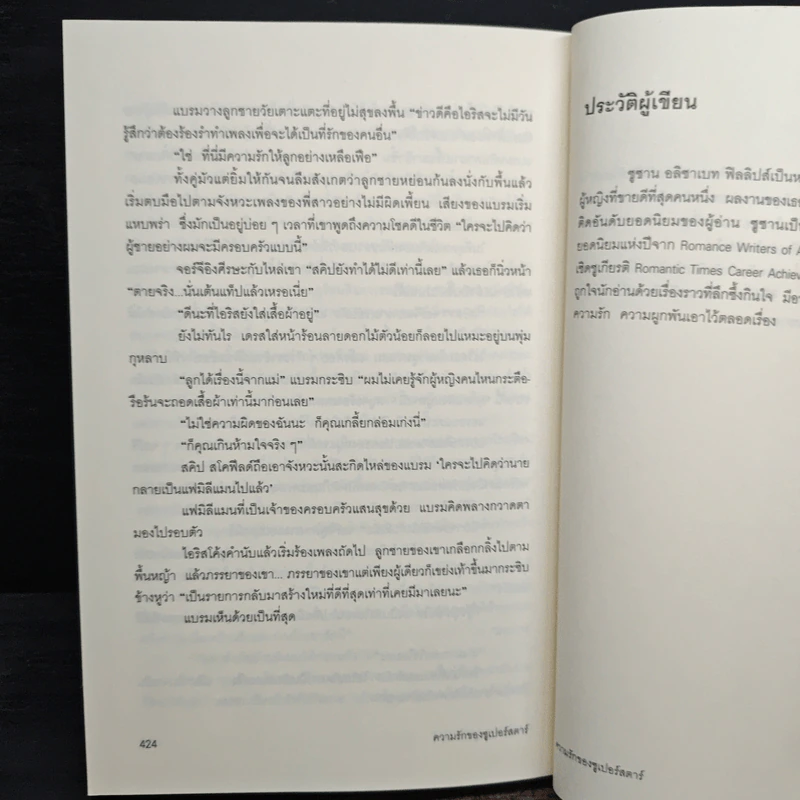 แบรมวางลูกชายวัยเตาะแตะที่อยู่ไม่สุขลงพื้น “ข่าวดีคือไอริสจะไม่มีวัน
รู้สึกว่าต้องร้องรำทำเพลงเพื่อจะได้เป็นที่รักของคนอื่น”
“ใช่ ที่นี่มีความรักให้ลูกอย่างเหลือเฟือ”
ทั้งคู่มัวแต่ยิ้มให้กันจนลืมสังเกตว่าลูกชายหย่อนก้นลงนั่งกับพื้นแล้ว
เริ่มตบมือไปตามจังหวะเพลงของพี่สาวอย่างไม่มีผิดเพี้ยน เสียงของแบรมเริ่ม
แหบพร่า ซึ่งมักเป็นอยู่บ่อย ๆ เวลาที่เขาพูดถึงความโชคดีในชีวิต “ใครจะไปคิดว่า
ผู้ชายอย่างผมจะมีครอบครัวแบบนี้”
จอร์จีอิงศีรษะกับไหล่เขา “สคิปยังทำได้ไม่ดีเท่านี้เลย” แล้วเธอก็นิ่วหน้า
“ตายจริง...นั่นเต้นแท็ปแล้วเหรอเนี่ย”
“ดีนะที่ไอริสยังใส่เสื้อผ้าอยู่”
ยังไม่ทันไร เดรสใส่หน้าร้อนลายดอกไม้ตัวน้อยก็ลอยไปแหมะอยู่บนพุ่ม
กุหลาบ
“ลูกได้เรื่องนี้จากแม่” แบรมกระซิบ “ผมไม่เคยรู้จักผู้หญิงคนไหนกระตือ-
รือร้นจะถอดเสื้อผ้าเท่านี้มาก่อนเลย”
“ไม่ใช่ความผิดของฉันนะ ก็คุณเกลี้ยกล่อมเก่งนี่”
“ก็คุณเกินห้ามใจจริง ๆ”
สคิป สโคฟีลด์ถือเอาจังหวะนั้นสะกิดไหล่ของแบรม ‘ใครจะไปคิดว่านาย
กลายเป็นแฟมิลีแมนไปแล้ว’
แฟมิลีแมนที่เป็นเจ้าของครอบครัวแสนสุขด้วย แบรมคิดพลางกวาดตา
มองไปรอบตัว
ไอริสโค้งคำนับแล้วเริ่มร้องเพลงถัดไป ลูกชายของเขาเกลือกกลิ้งไปตาม
พื้นหญ้า แล้วภรรยาของเขา... ภรรยาของเขาแต่เพียงผู้เดียวก็เขย่งเท้าขึ้นมากระซิบ
ข้างหูว่า “เป็นรายการกลับมาสร้างใหม่ที่ดีที่สุดเท่าที่เคยมีมาเลยนะ”
แบรมเห็นด้วยเป็นที่สุด
424
ความรักของซูเปอร์สตาร์
ประวัติผู้เขียน
ซูซาน อลิซาเบท ฟิลลิปส์เป็นห
ผู้หญิงที่ขายดีที่สุดคนหนึ่ง ผลงานของเธอ
ติดอันดับยอดนิยมของผู้อ่าน ซูซานเป็
ยอดนิยมแห่งปีจาก Romance Writers of A
เชิดชูเกียรติ Romantic Times Career Achiev
ถูกใจนักอ่านด้วยเรื่องราวที่ลึกซึ้งกินใจ มีอ
ความรัก ความผูกพันเอาไว้ตลอดเรื่อง
ความรักของซูเปอร์สตาร์